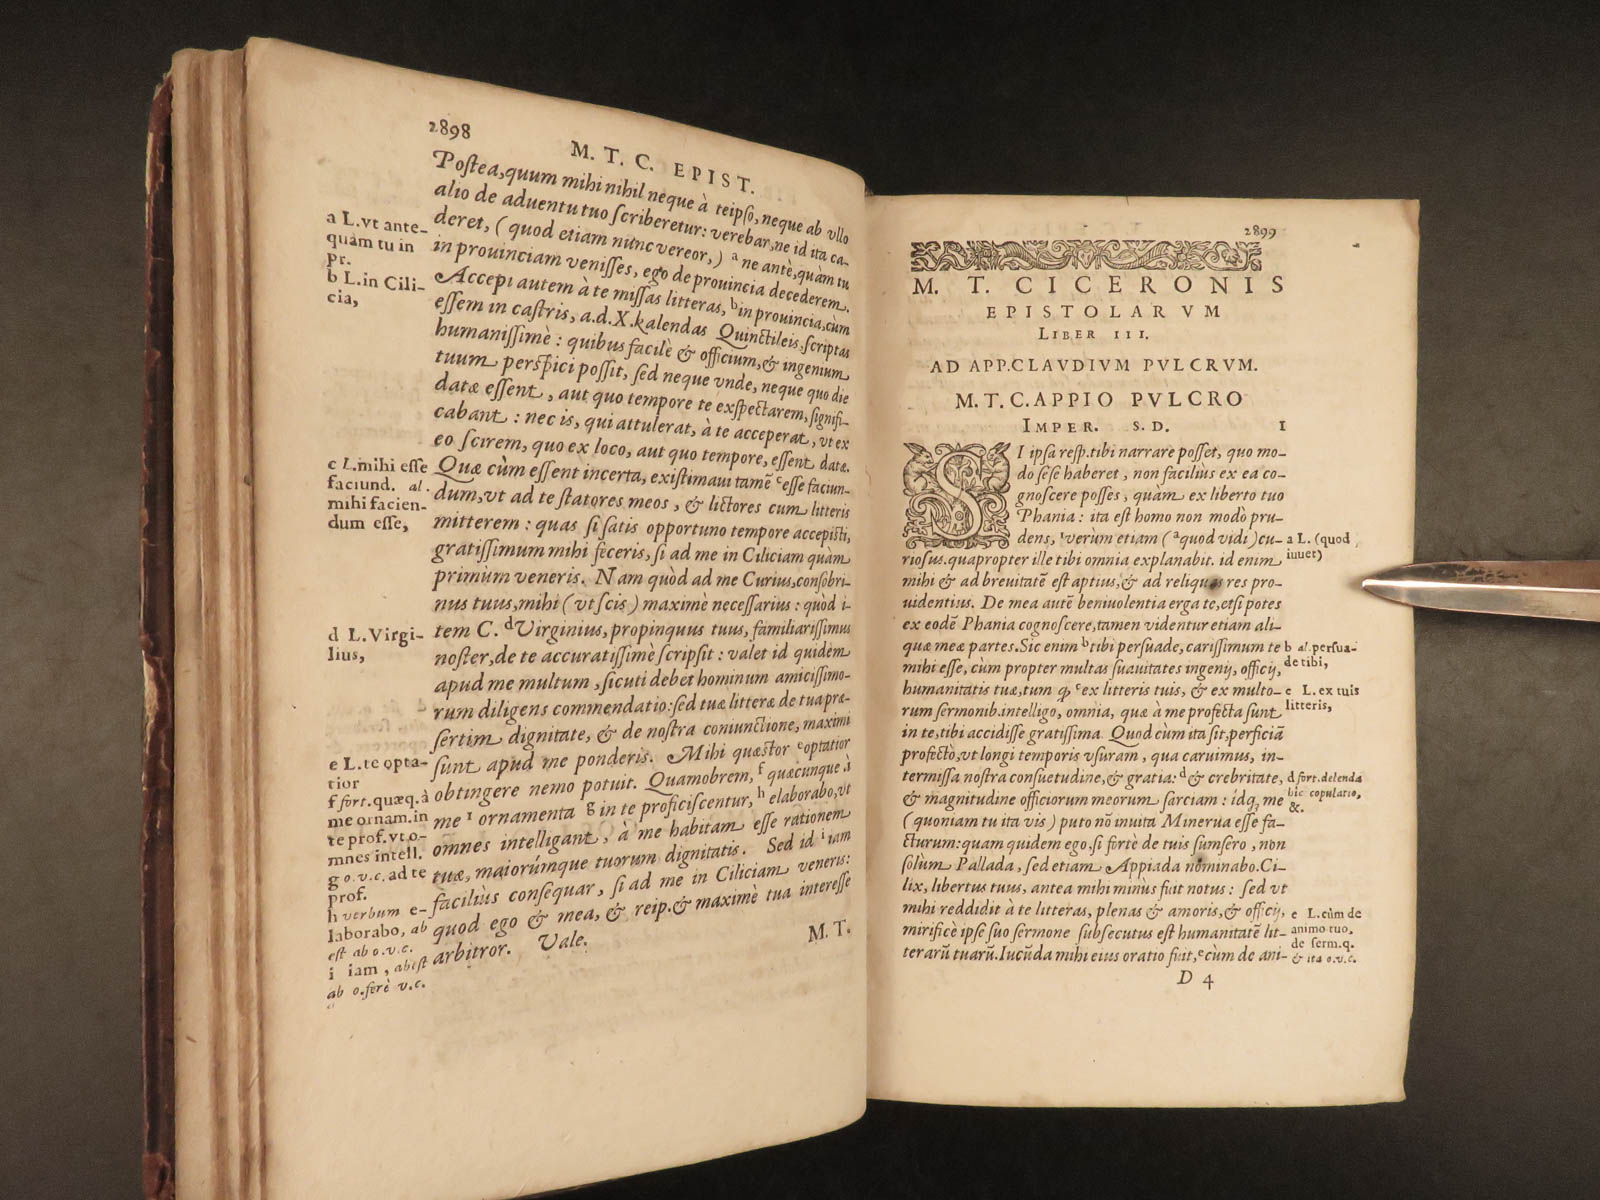 2898
M. T. C. EPIST.
Postea, quum mihi nihil neque à teipso, neque ab vllo
alio de aduentu tuo scriberetur: verebar, ne id ita ca-
deret, (quod etiam nunc vereor,) a ne antè, quàm tu
in prouinciam venisses, ego de prouincia decederem.
Accepi autem à te missas litteras, b in prouincia, cùm
essem in castris, a.d.X. kalendas Quinctileis, scriptas
humanissimè: quibus facilè & officium, & ingenium
tuum perspici possit, sed neque vnde, neque quo die
datæ essent, aut quo tempore te exspectarem, signifi-
cabant: nec is, qui attulerat, à te acceperat, vt ex
eo scirem, quo ex loco, aut quo tempore, essent datæ.
Quæ cùm essent incerta, existimaui tamẽ c esse faciun-
dum, vt ad te statores meos, & lictores cum litteris
mitterem: quas si satis opportuno tempore accepisti,
gratissimum mihi feceris, si ad me in Ciliciam quàm
primum veneris. Nam quòd ad me Curius, consobri-
nus tuus, mihi (vt scis) maximè necessarius: quòd i-
tem C. d Virginius, propinquus tuus, familiarissimus
noster, de te accuratissimè scripsit: valet id quidem
apud me multum, sicuti debet hominum amicissimo-
rum diligens commendatio: sed tuæ litteræ de tua præ-
sertim dignitate, & de nostra coniunctione, maximi
sunt apud me ponderis. Mihi quæstor e optatior
obtingere nemo potuit. Quamobrem, f quæcunque à
me ı ornamenta g in te proficiscentur, h elaborabo, vt
omnes intelligant, à me habitam esse rationem
tuæ, maiorúmque tuorum dignitatis. Sed id i iam
faciliùs consequar, si ad me in Ciliciam veneris:
quod ego & mea, & reip. & maximè tua interesse
arbitror. Vale.
M. T.
a L. vt ante-
quàm tu in
pr.
b L. in Cili-
cia,
c L. mihi esse
faciund. al.
mihi facien-
dum esse,
d L. Virgi-
lius,
e L. te opta-
tior
f fort. quæq. à
me ornam. in
te prof. vt o-
mnes intell.
g o. v.c. ad te
prof.
h verbum e-
laborabo, ab
est ab o. v.c.
i iam, abest
ab o. ferè v.c.
2899
M. T. CICERONIS
EPISTOLARVM
LIBER III.
AD APP. CLAVDIVM PVLCRVM.
M. T. C. APPIO PVLCRO
IMPER. S. D. I
SI ipsa resp. tibi narrare posset, quo mo-
do sese haberet, non facilius ex ea co-
gnoscere posses, quàm ex liberto tuo
Phania: ita est homo non modò pru-
dens, verùm etiam (a quod vidi) cu-
riosus. quapropter ille tibi omnia explanabit. id enim
mihi & ad breuitatẽ est aptius, & ad reliquas res pro-
uidentius. De mea autẽ beniuolentia erga te, etsi potes
ex eodẽ Phania cognoscere, tamen videntur etiam ali-
quæ meæ partes. Sic enim b tibi persuade, carissimum te
mihi esse, cùm propter multas suauitates ingenij, officij,
humanitatis tuæ, tum ꝙ c ex litteris tuis, & ex multo-
rum sermonib. intelligo, omnia, quæ à me profecta sunt
in te, tibi accidisse gratissima. Quod cùm ita sit, perficiã
profectò, vt longi temporis vsuram, qua caruimus, in-
termissa nostra consuetudine, & gratia: d & crebritate,
& magnitudine officiorum meorum sarciam: idq, me
(quoniam tu ita vis) puto nõ inuita Minerua esse fa-
cturum: quam quidem ego, si fortè de tuis sumsero, non
solùm Pallada, sed etiam Appiada nominabo. Ci-
lix, libertus tuus, antea mihi minùs fuit notus: sed vt
mihi reddidit à te litteras, plenas & amoris, & officij,
mirificè ipse suo sermone subsecutus est humanitatẽ lit-
terarũ tuarũ. Iucũda mihi eius oratio fuit, e cùm de ani-
D 4
a L. (quod
iuuet)
b al. persua-
de tibi,
c L. ex tuis
litteris,
d fort. delenda
hîc copulatio,
&.
e L. cùm de
animo tuo,
de serm. q.
& ita o. v.c.